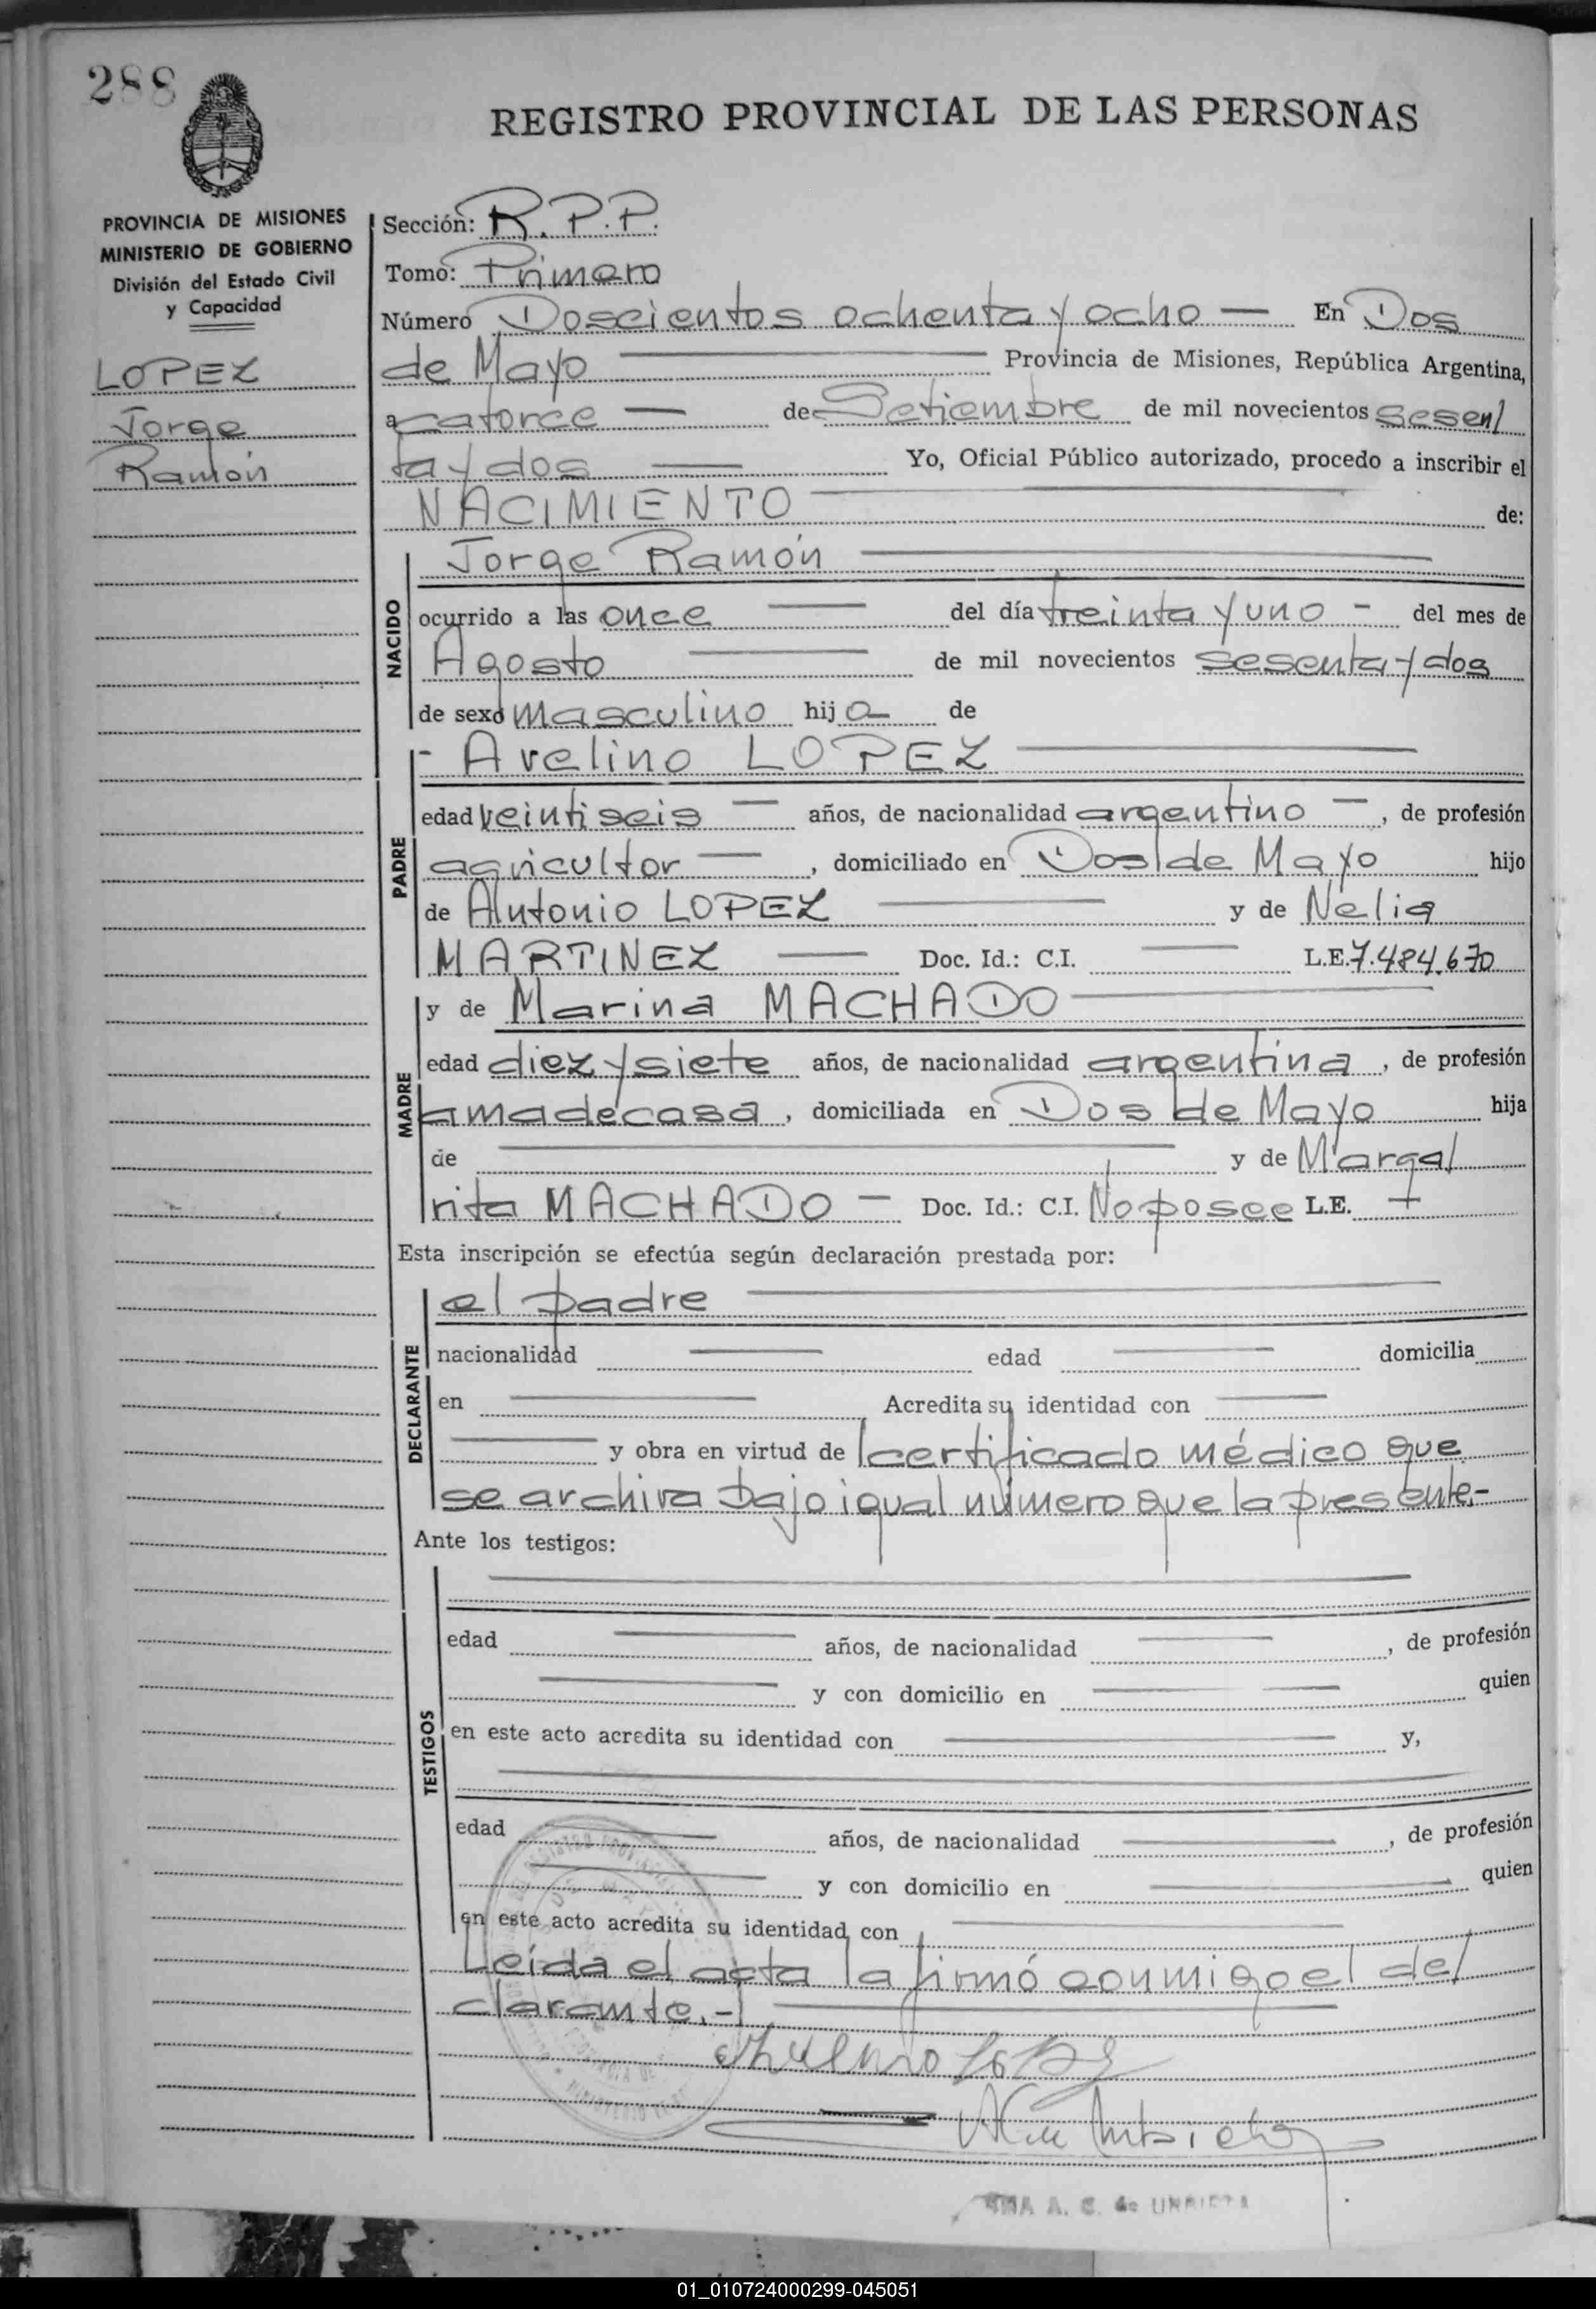 288
REGISTRO PROVINCIAL DE LAS PERSONAS
PROVINCIA DE MISIONES
MINISTERIO DE GOBIERNO
División del Estado Civil
y Capacidad
LOPEZ
Jorge
Ramón
Sección: R.P.P.
Tomo: Primero
Número Doscientos ochenta y ocho — En Dos
de Mayo — Provincia de Misiones, República Argentina,
a catorce — de Setiembre de mil novecientos sesen/
ta y dos — Yo, Oficial Público autorizado, procedo a inscribir el
NACIMIENTO — de:
NACIDO
Jorge Ramón —
ocurrido a las once — del día treinta y uno - del mes de
Agosto — de mil novecientos sesenta y dos
de sexo masculino hijo de
- Avelino LOPEZ —
PADRE
edad veintiseis — años, de nacionalidad argentino —, de profesión
agricultor —, domiciliado en Dos de Mayo hijo
de Antonio LOPEZ — y de Nelia
MARTINEZ — Doc. Id.: C.I. — L.E. 7.484.670
y de Marina MACHADO —
MADRE
edad diez y siete años, de nacionalidad argentina, de profesión
ama de casa, domiciliada en Dos de Mayo hija
de — y de Marga/
rita MACHADO — Doc. Id.: C.I. No posee L.E. —
Esta inscripción se efectúa según declaración prestada por:
DECLARANTE
el padre —
nacionalidad — edad — domicilia
en — Acredita su identidad con —
— y obra en virtud de certificado médico que
se archiva bajo igual número que la presente.-
Ante los testigos:
TESTIGOS
edad — años, de nacionalidad —, de profesión
— y con domicilio en — quien
en este acto acredita su identidad con — y,
edad — años, de nacionalidad —, de profesión
— y con domicilio en — quien
en este acto acredita su identidad con —
Leída el acta la firmó conmigo el de/
clarante.- —
A. C. de URBIETA
01_010724000299-045051